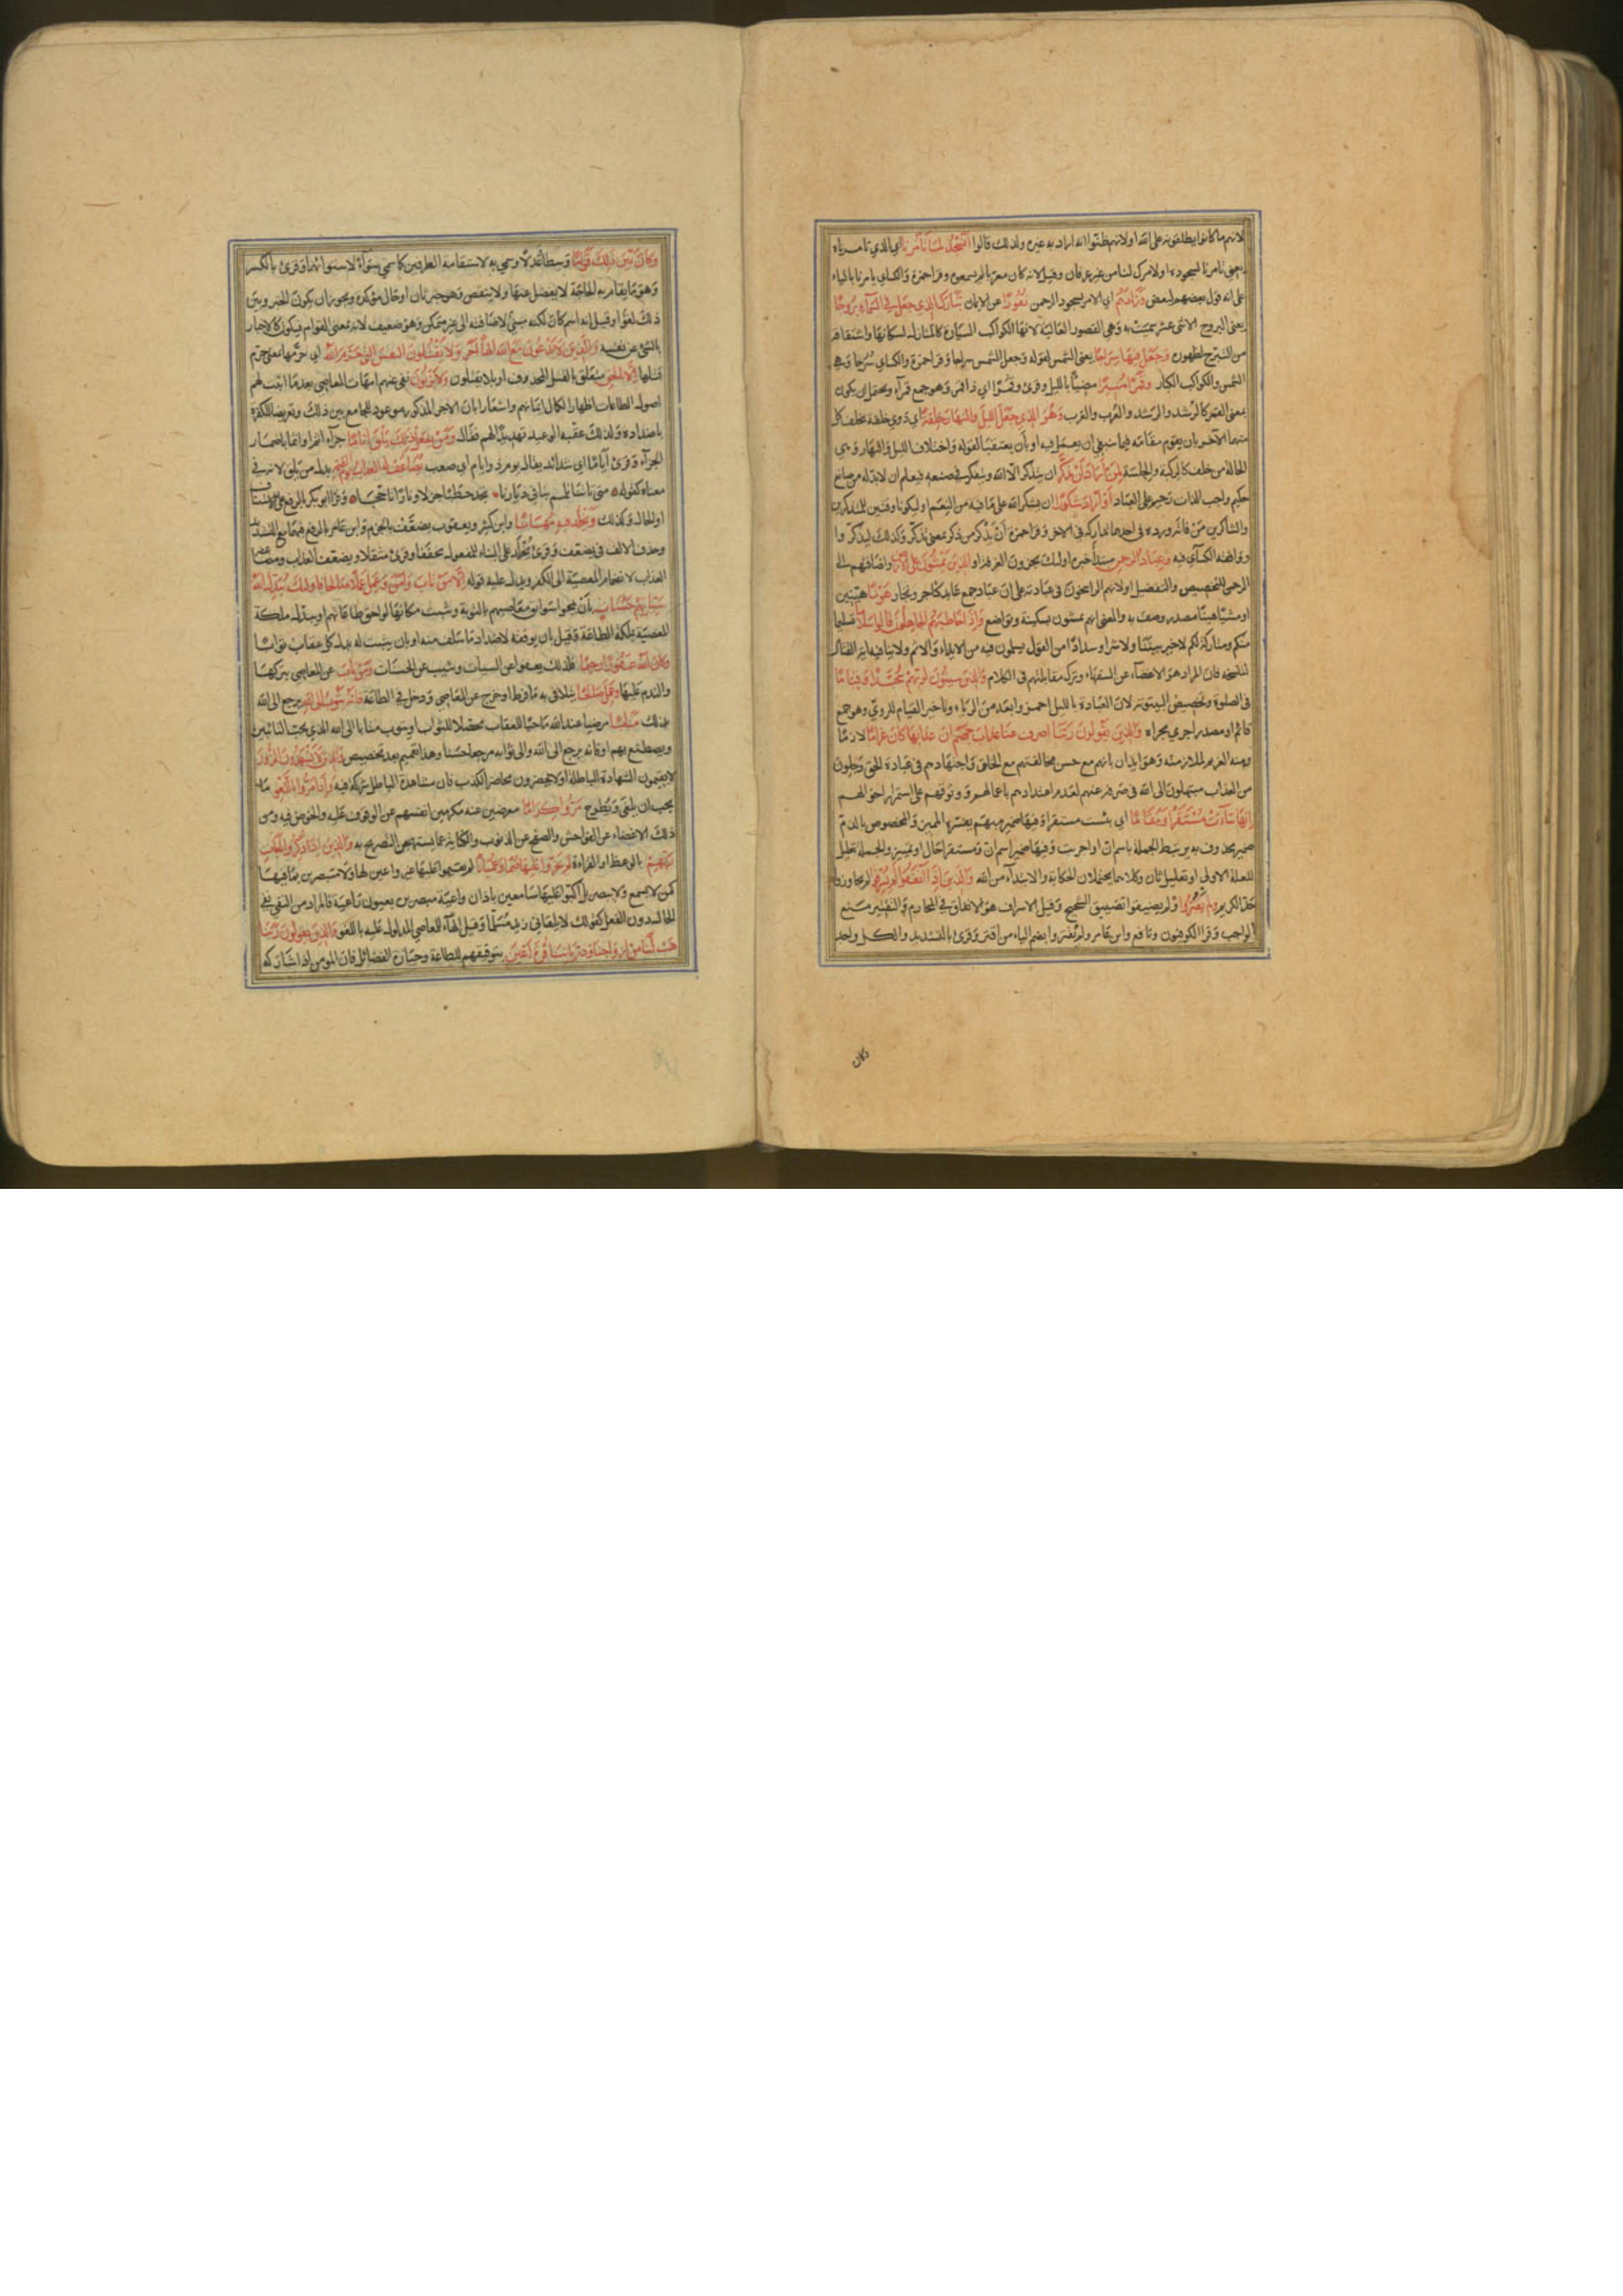 لانهم ما كانوا يطلقونه على الله او لانهم ظنوا انه اراد به غيره ولذلك قالوا انسجد لما تأمرنا اي الذي تامرناه
يعني تامرنا بسجوده او لامرك لنا من غير عرفان وقيل لانه كان معربا لم يسمعوه وقرا حمزة والكسائي يامرنا بالياء
على انه قول بعضهم لبعض وزادهم اي الامر بسجود الرحمن نفورا عن الايمان تبارك الذي جعل في السماء بروجا
يعني البروج الاثنى عشر سميت به وهي القصور العالية لانها للكواكب السيارة كالمنازل لسكانها واشتقاقه
من التبرج لظهوره وجعل فيها سراجا يعني الشمس لقوله وجعل الشمس سراجا وقرا حمزة والكسائي سرجا وهي
الشمس والكواكب الكبار وقمرا منيرا مضيئا بالليل وقرئ وقمرا اي ذا قمر وهو جمع قمراء ويحتمل ان يكون
بمعنى القمر كالرشد والرشد والعرب والعرب وهو الذي جعل الليل والنهار خلفة اي ذوي خلفة يخلف كل
منهما الآخر بان يقوم مقامه فيما ينبغي ان يعمل فيه او بأن يعتقبا لقوله واختلاف الليل والنهار وهي
الحالة من خلف كالركبة والجلسة لمن اراد ان يذكر ان يتذكر آلاء الله ويتفكر في صنعه فيعلم ان لابد له من صانع
حكيم واجب الذات رحيم على العباد او اراد شكورا ان يشكر الله على ما فيه من النعم او ليكونا وقتين للمتذكرين
والشاكرين من فاته ورده في احدهما تداركه في الاخر وقرا حمزة أن يذكر من ذكر بمعنى تذكر وكذلك ليذكروا
ووافقه الكسائي فيه وعباد الرحمن مبتدأ خبره اولئك يجزون الغرفة او الذين يمشون على الارض واضافتهم الى
الرحمن للتخصيص والتفضيل او لانهم الراسخون في عبادته على ان عباد جمع عابد كتاجر وتجار هونا هينين
او مشيا هينا مصدر وصف به والمعنى انهم يمشون بسكينة وتواضع واذا خاطبهم الجاهلون قالوا سلاما تسليما
منكم ومتاركة لكم لاخير بيننا ولا شر او سدادا من القول يسلمون فيه من الايذاء والاثم ولا ينافيه اية القتال
لتنسخه فان المراد هو الاغضاء عن السفهاء وترك مقابلتهم في الكلام والذين يبيتون لربهم سجدا وقياما
في الصلوة وتخصيص البيتوتة لان العبادة بالليل احمز وابعد من الرياء وتاخير القيام للروي وهو جمع
قائم او مصدر اجري مجراه والذين يقولون ربنا اصرف عنا عذاب جهنم ان عذابها كان غراما لازما
ومنه الغريم لملازمته وهو ايذان بانهم مع حسن مخالقتهم مع الخلق واجتهادهم في عبادة الحق وجلون
من العذاب مبتهلون الى الله في صرفه عنهم لعدم اعتدادهم باعمالهم و وثوقهم على استمرار احوالهم
انها ساءت مستقرا ومقاما اي بئست مستقرا وفيها ضمير مبهم يفسره المميز والمخصوص بالذم
ضمير محذوف به يرتبط الجملة باسم ان او احزنت وفيها ضمير اسم ان ومستقرا حال او تمييز والجملة تعليل
للعلة الاولى او تعليل ثان وكلاهما يحتملان الحكاية والابتداء من الله والذين اذا انفقوا لم يسرفوا لم يجاوزوا
حد الكرم ولم يقتروا ولم يضيقوا تضييق الشحيح وقيل الاسراف هو الانفاق في المحارم والتقتير منع
الواجب وقرا الكوفيون ونافع وابن عامر ولم يقتروا بضم الياء من اقتر وقرئ بالتشديد والكل واحد
وكان
وكان بين ذلك قواما وسطا عدلا وسمي به لاستقامة الطرفين كما سمي سواء لاستوائهما وقرئ بالكسر
وهو ما يقام به الحاجة لا يفضل عنها ولا ينقص وهو خبر ثان او حال مؤكدة ويجوز ان يكون الخبر وبين
ذلك لغوا وقيل انه اسم كان لكنه مبني لاضافته الى غير متمكن وهو ضعيف لانه بمعنى القوام فيكون كالاخبار
بالشئ عن نفسه والذين لا يدعون مع الله الها آخر ولا يقتلون النفس التي حرم الله اي حرمها بمعنى حرم
قتلها الا بالحق متعلق بالقتل المحذوف او بلا يقتلون ولا يزنون نفى عنهم امهات المعاصي بعد ما اثبت لهم
اصول الطاعات اظهارا لكمال ايمانهم واشعارا بان الاجر المذكور موعود للجامع بين ذلك وتعريضا للكفرة
باضداده ولذلك عقبه الوعيد تهديدا لهم فقال ومن يفعل ذلك يلق اثاما جزاء اثم او اثما باضمار
الجزاء وقرئ أياما اي شدائد يقال يوم ذو ايام اي صعب يضاعف له العذاب يوم القيمة بدل من يلق لانه في
معناه كقوله متى تاتنا تلمم بنا في ديارنا تجد حطبا جزلا ونارا تاججا وقرا ابو بكر بالرفع على الاستئناف
او الحال وكذلك ويخلد فيه مهانا وابن كثير ويعقوب يضعف بالجزم وابن عامر بالرفع فيهما مع التشديد
وحذف الالف في يضعف وقرئ يخلد على البناء للمفعول مخففا وقرئ مثقلا ويضعف العذاب ومضاعفة
العذاب لانضمام المعصية الى الكفر ويدل عليه قوله الا من تاب وآمن وعمل عملا صالحا فاولئك يبدل الله
سيئاتهم حسنات بأن يمحو سوابق معاصيهم بالتوبة ويثبت مكانها لواحق طاعاتهم او يبدل ملكة
المعصية بملكة الطاعة وقيل بان يوفقه لاضداد ما سلف منه او بان يثبت له بدل كل عقاب ثوابا
وكان الله غفورا رحيما فلذلك يعفو عن السيئات ويثيب عن الحسنات ومن تاب عن المعاصي بتركها
والندم عليها وعمل صالحا يتلافى به ما فرط او خرج عن المعاصي ودخل في الطاعة فانه يتوب الى الله يرجع الى الله
بذلك متابا مرضيا عند الله ماحيا للعقاب محصلا للثواب او يتوب متابا الى الله الذي يحب التائبين
ويصطنع بهم او فانه يرجع الى الله والى ثوابه مرجعا حسنا وهذا تعميم بعد تخصيص والذين لا يشهدون الزور
لا يقيمون الشهادة الباطلة او لا يحضرون محاضر الكذب فان مشاهدة الباطل شركة فيه واذا مروا باللغو ما
يجب ان يلغى ويطرح مروا كراما معرضين عنه مكرمين انفسهم عن الوقوف عليه والخوض فيه ومن
ذلك الاغضاء عن الفواحش والصفح عن الذنوب والكناية عما يستهجن التصريح به والذين اذا ذكروا بآيات
ربهم بالوعظ او القراءة لم يخروا عليها صما وعميانا لم يقيموا عليها غير واعين لها ولا متبصرين بما فيها
كمن لا يسمع ولا يبصر بل اكبوا عليها سامعين باذان واعية مبصرين بعيون راعية فالمراد من النفي نفي
الحال دون الفعل كقولك لا يلقاني زيد مسلما وقيل الهاء للمعاصي المدلول عليه باللغو والذين يقولون ربنا
هب لنا من ازواجنا وذرياتنا قرة اعين بتوفيقهم للطاعة وحيازة الفضائل فان المومن اذا شاركه